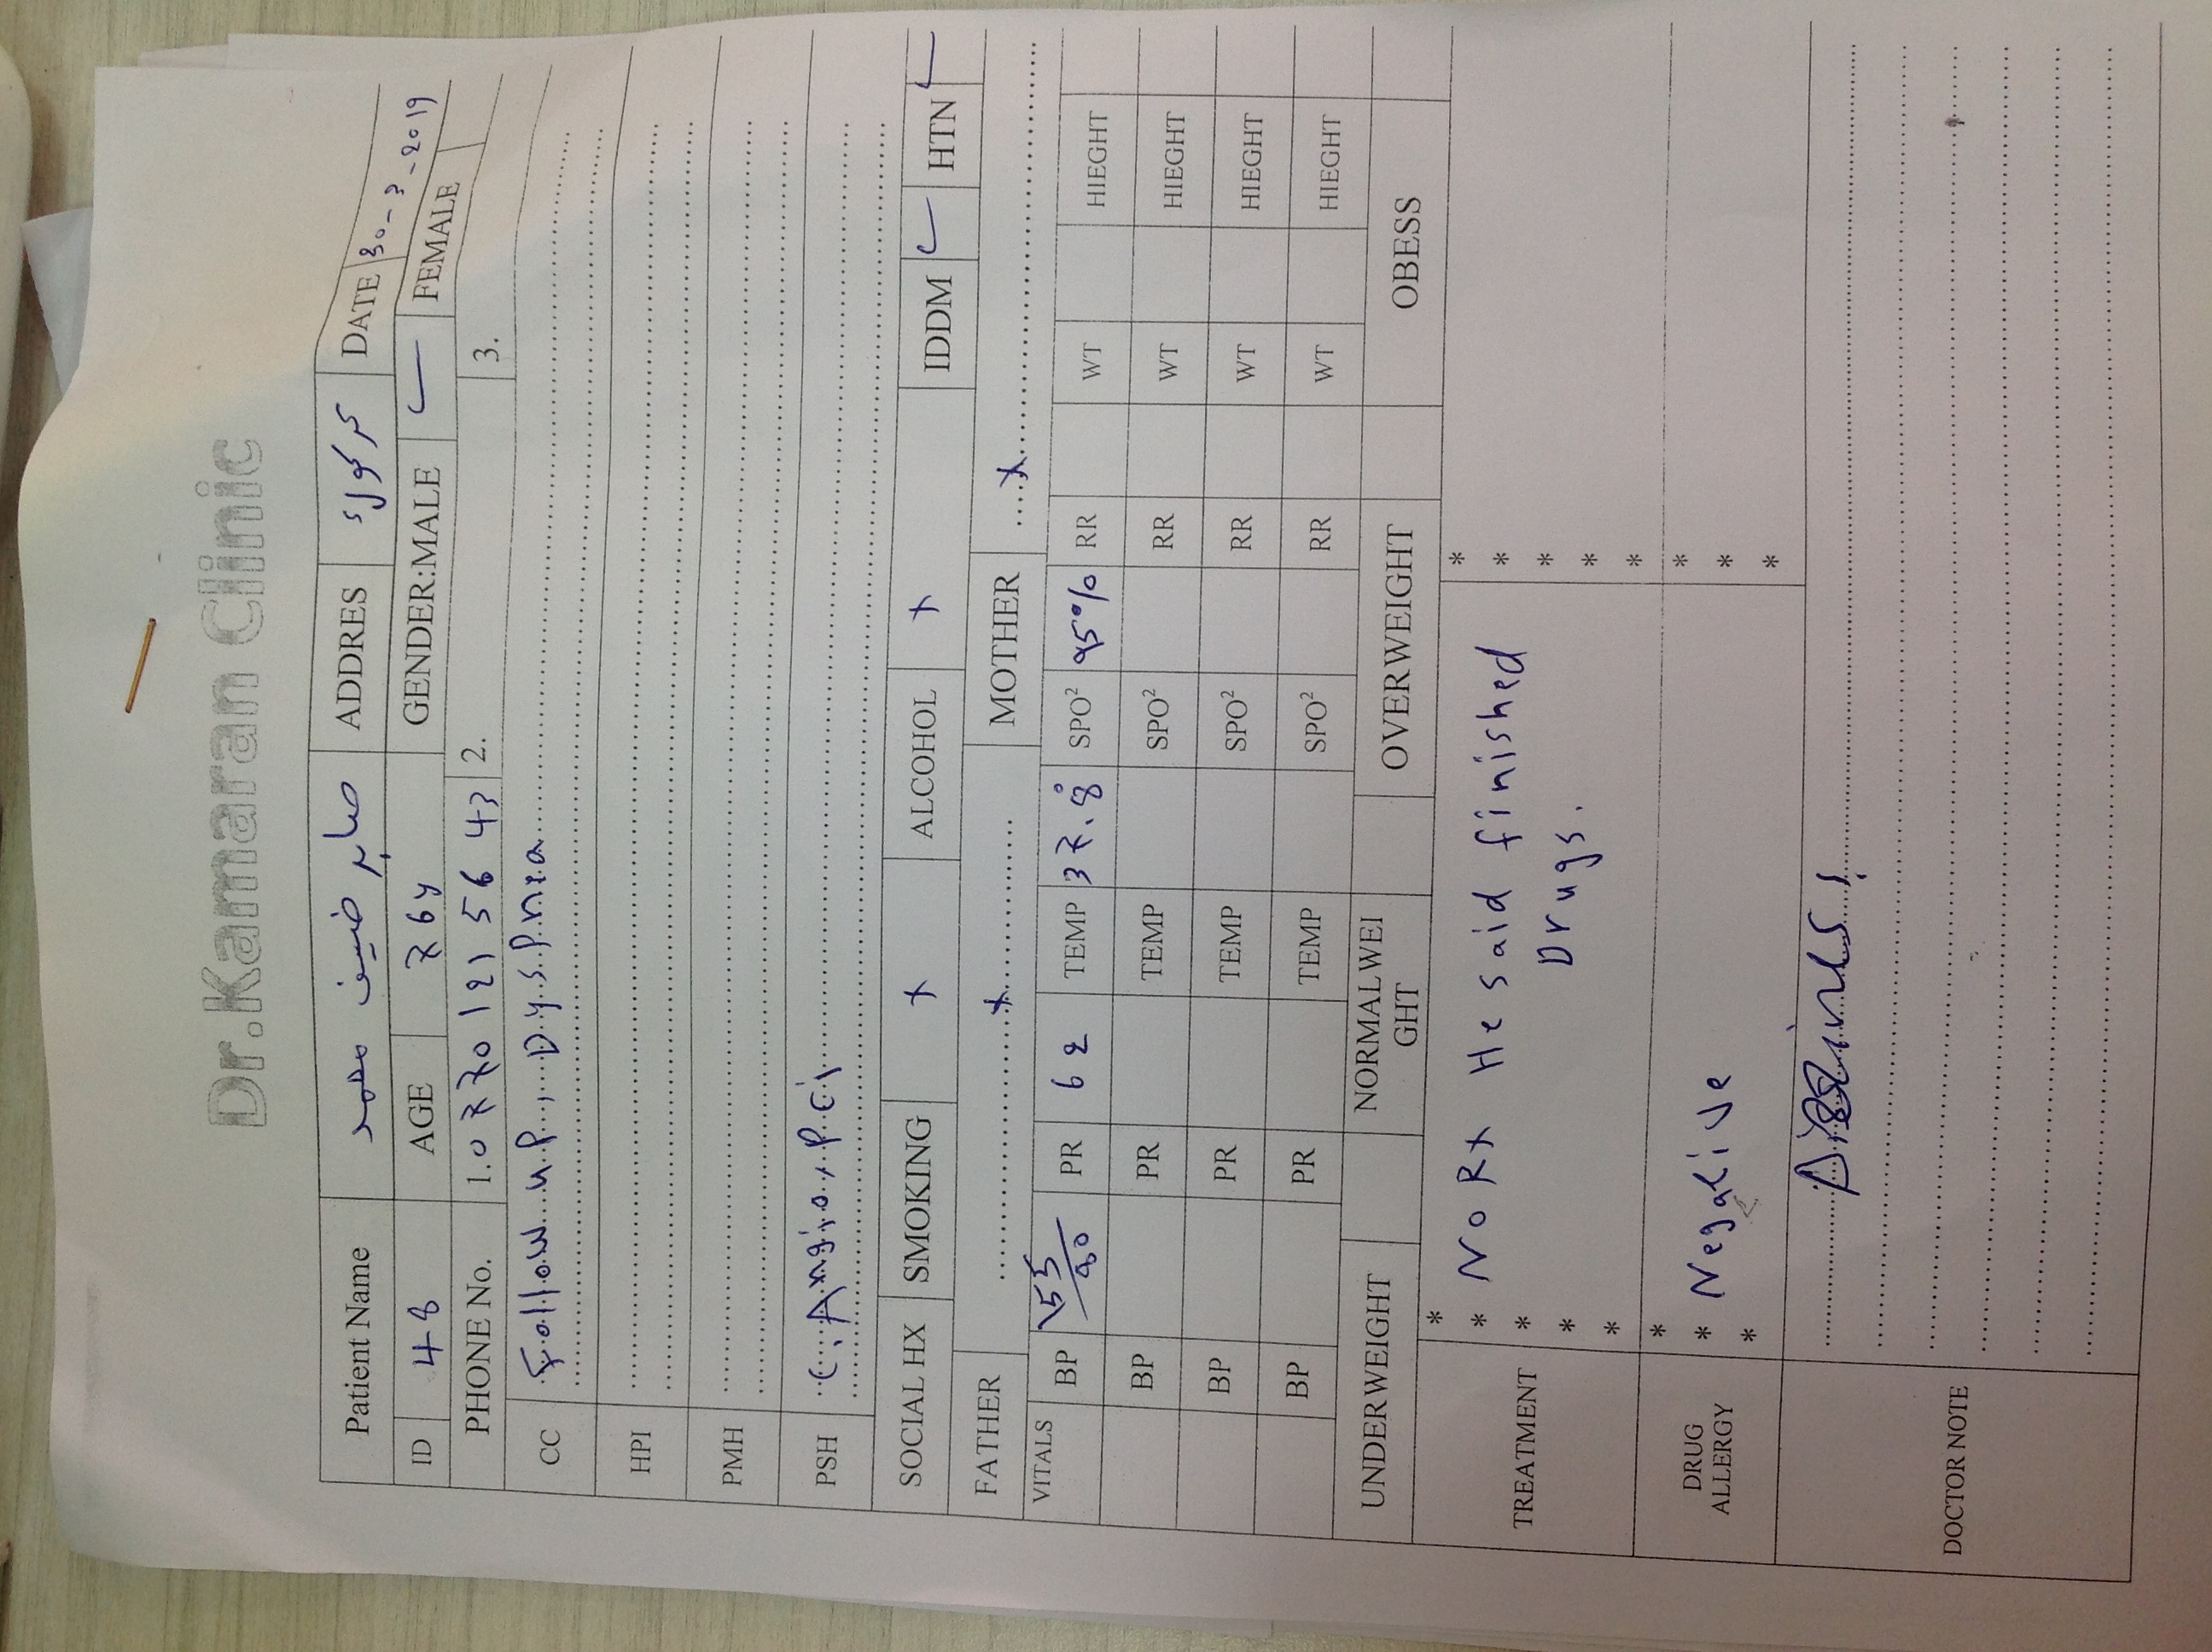 Dr.Kamaran Clinic
Patient Name صابر ضيف محمد ADDRES كركوك DATE 30-3-2019
ID 48 AGE 76y GENDER:MALE ✓ FEMALE
PHONE No. 1.0770 121 56 43 2. 3.
CC Follow up, Dyspnea
HPI
PMH
PSH C.Angio, PCi
SOCIAL HX SMOKING x ALCOHOL x IDDM ✓ HTN ✓
FATHER x MOTHER x
VITALS BP 155/80 PR 62 TEMP 37.8 SPO² 95% RR WT HIEGHT
BP PR TEMP SPO² RR WT HIEGHT
BP PR TEMP SPO² RR WT HIEGHT
BP PR TEMP SPO² RR WT HIEGHT
UNDERWEIGHT NORMAL WEI GHT OVERWEIGHT OBESS
TREATMENT
* *
* No Rx He said finished *
* Drugs. *
* *
* *
DRUG ALLERGY
* *
* Negative *
* *
DOCTOR NOTE